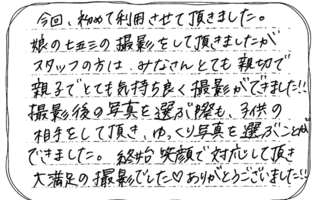 今回、初めて利用させて頂きました。
娘の七五三の撮影をして頂きましたが
スタッフの方は、みなさんとても親切で
親子でとても気持ち良く撮影ができました!!
撮影後の写真を選ぶ際も、子供の
相手をして頂き、ゆっくり写真を選ぶことが
できました。終始笑顔で対応して頂き
大満足の撮影でした♡ありがとうございました!!